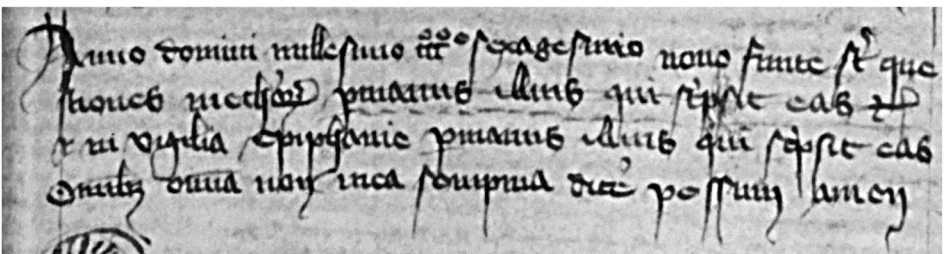 Anno domini millesimo iiiº sexagesimo nono finite st que
stiones metheororum pmanus illius qui scpsit eas
et in vigilia Epiphanie pmanus illius qui scpsit eas
Omnibz omnia non mea sompnia dicere possum amen